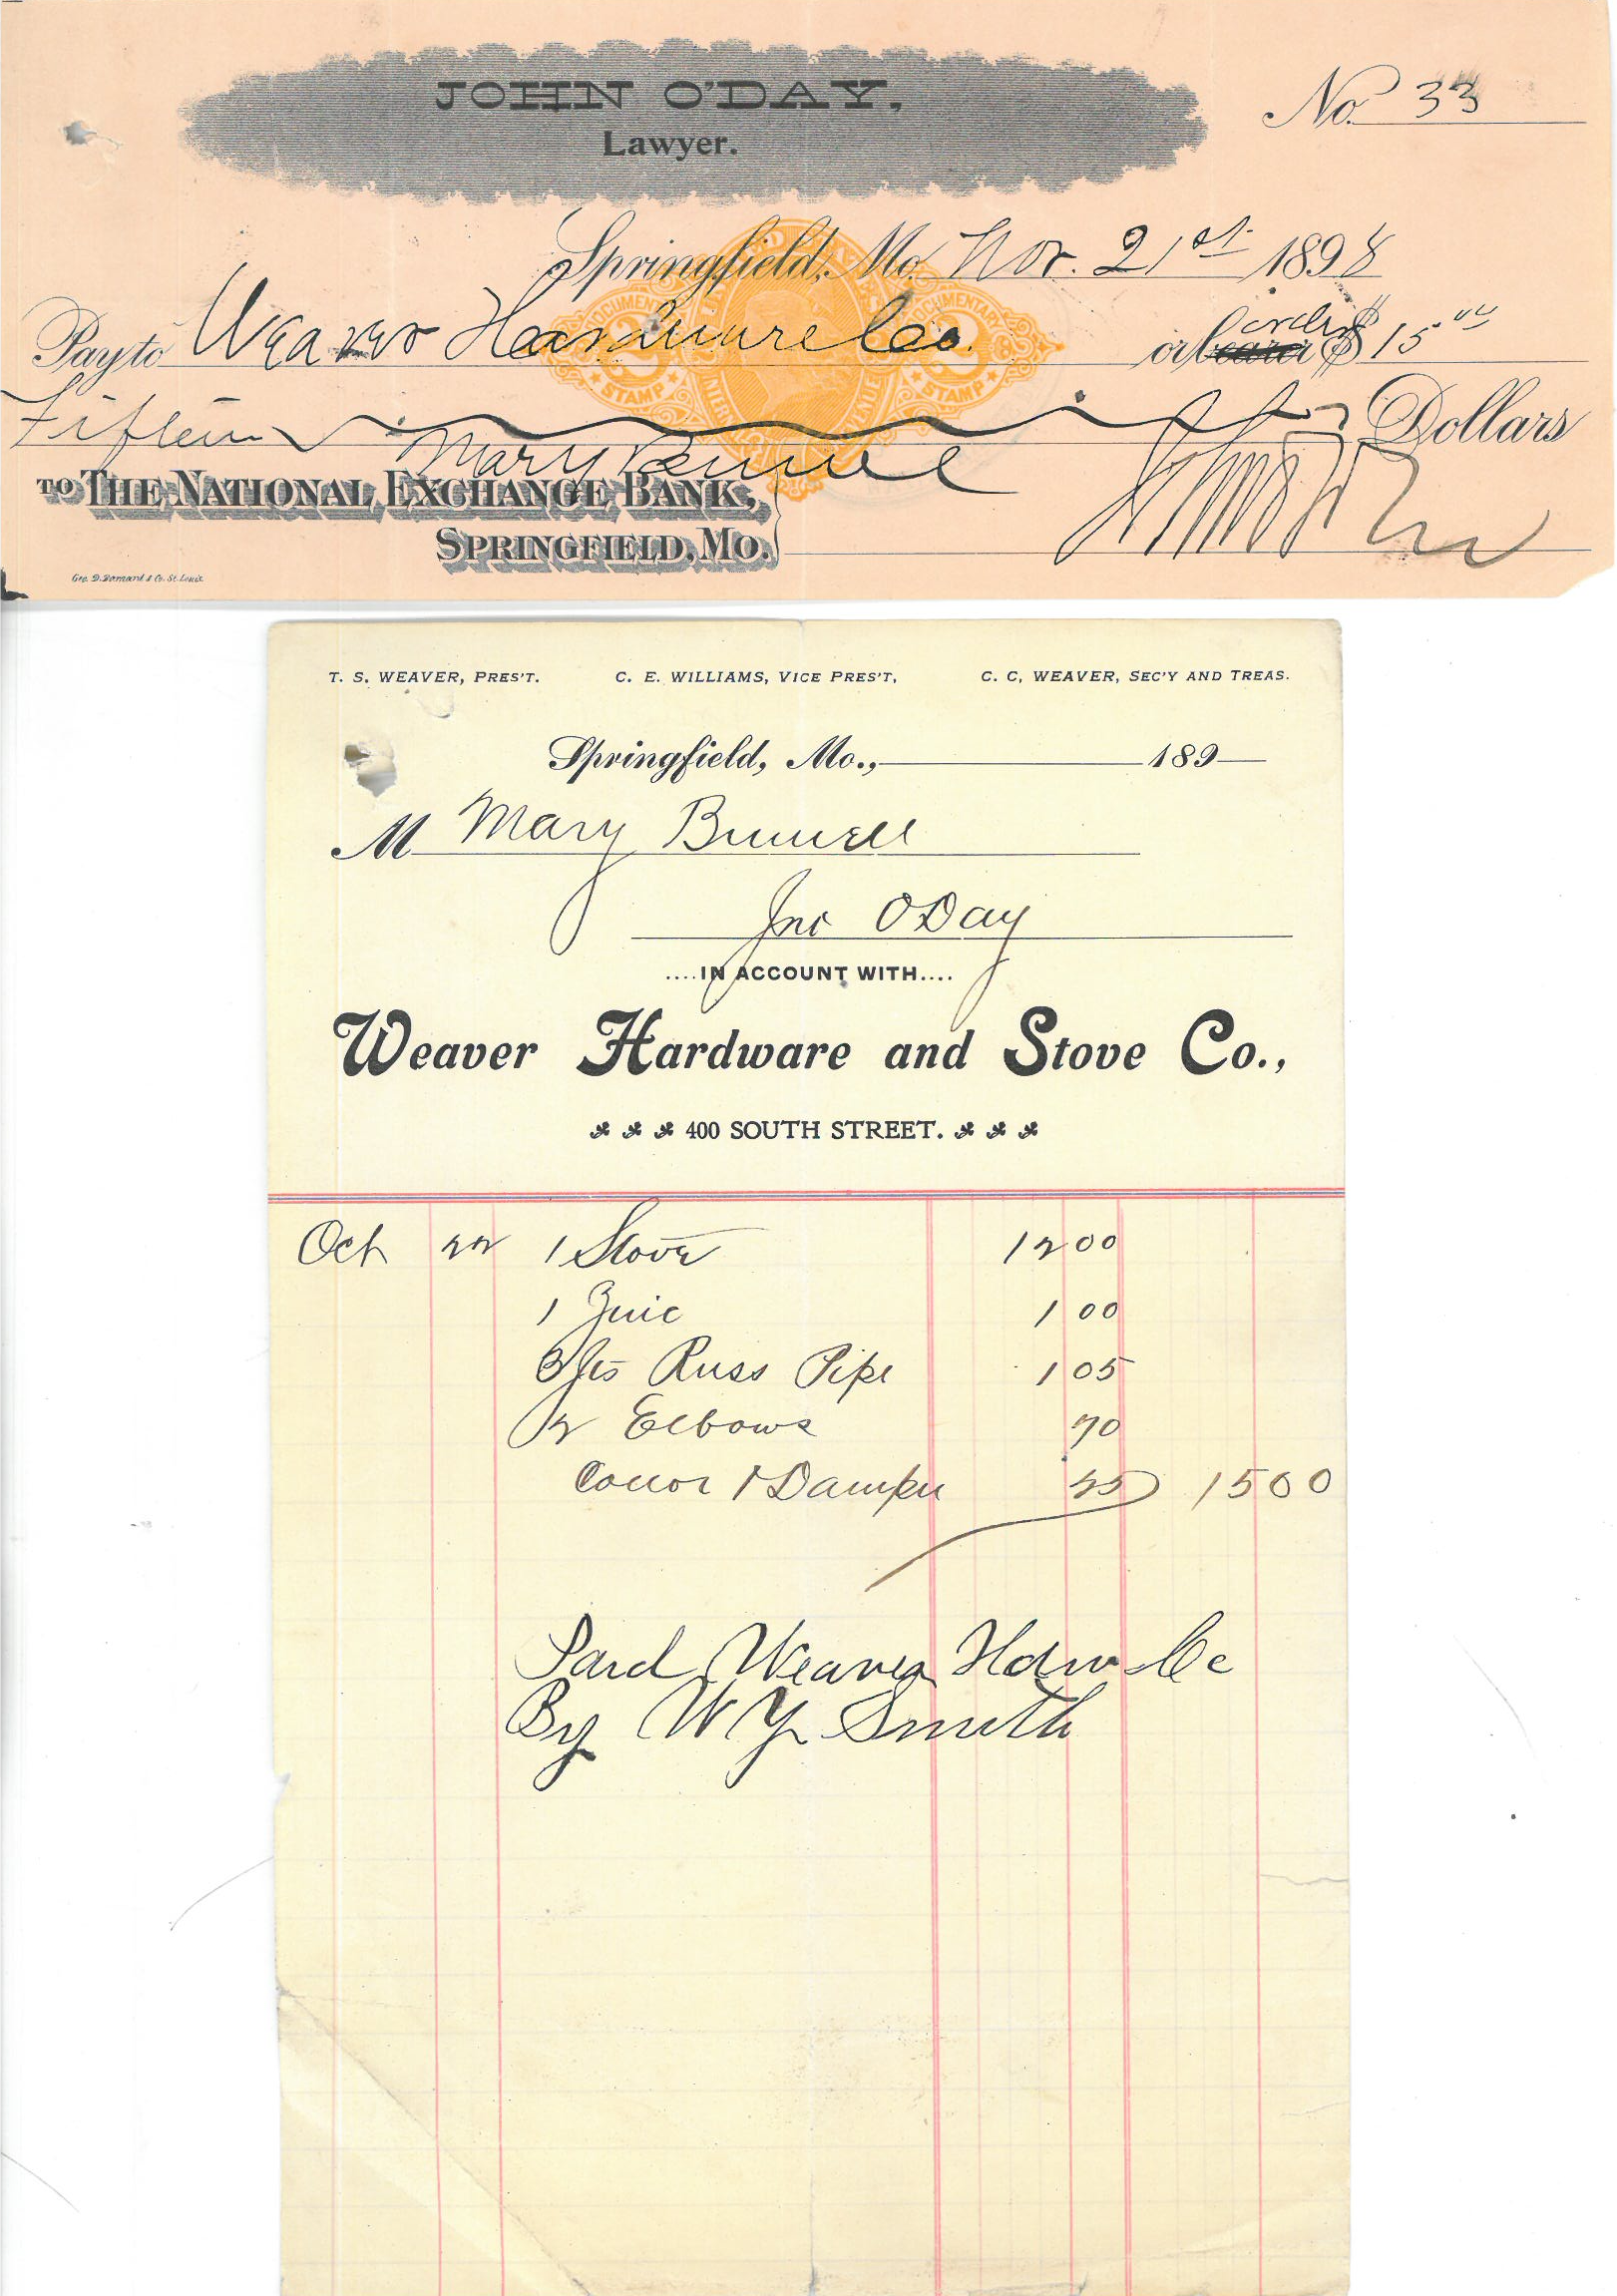 JOHN O'DAY,
Lawyer.
No. 33
Springfield, Mo. Nov. 21st 1898
Pay to Weaver Hardware Co. or bearer order $ 15 00
Fifteen Dollars
Mary
TO THE NATIONAL EXCHANGE BANK,
SPRINGFIELD, MO.
Geo. D. Barnard & Co. St. Louis
DOCUMENTARY
DOCUMENTARY
2
2
STAMP
STAMP
T. S. WEAVER, PRES'T. C. E. WILLIAMS, VICE PRES'T, C. C, WEAVER, SEC'Y AND TREAS.
Springfield, Mo., 189
M Mary
Jno O Day
....IN ACCOUNT WITH....
Weaver Hardware and Stove Co.,
400 SOUTH STREET.
Oct 22 1 Stove 12 00
1 Zinc 1 00
3 Jts Russ Pipe 1 05
2 Elbows 70
1 Damper 25 15 00
Paid Weaver Hdw Co
By W Y Smith